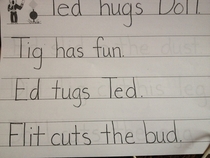 Ted hugs Doll
Tig has fun.
Ed tugs Ted.
Flit cuts the bud.